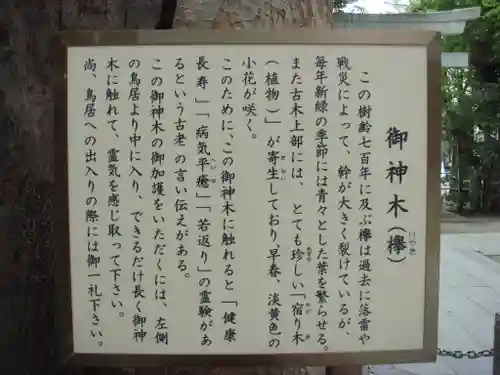 御神木(欅)
けやき
この樹齢七百年に及ぶ欅は過去に落雷や
戦災によって、幹が大きく裂けているが、
毎年新緑の季節には青々とした葉を繁らせる。
また古木上部には、とても珍しい「宿り木
(植物)」が寄生しており、早春、淡黄色の
小花が咲く。
このために、この御神木に触れると「健康
長寿」「病気平癒」「若返り」の霊験があ
るという古老の言い伝えがある。
この御神木の御加護をいただくには、左側
の鳥居より中に入り、できるだけ長く御神
木に触れて、霊気を感じ取って下さい。
尚、鳥居への出入りの際には御一礼下さい。